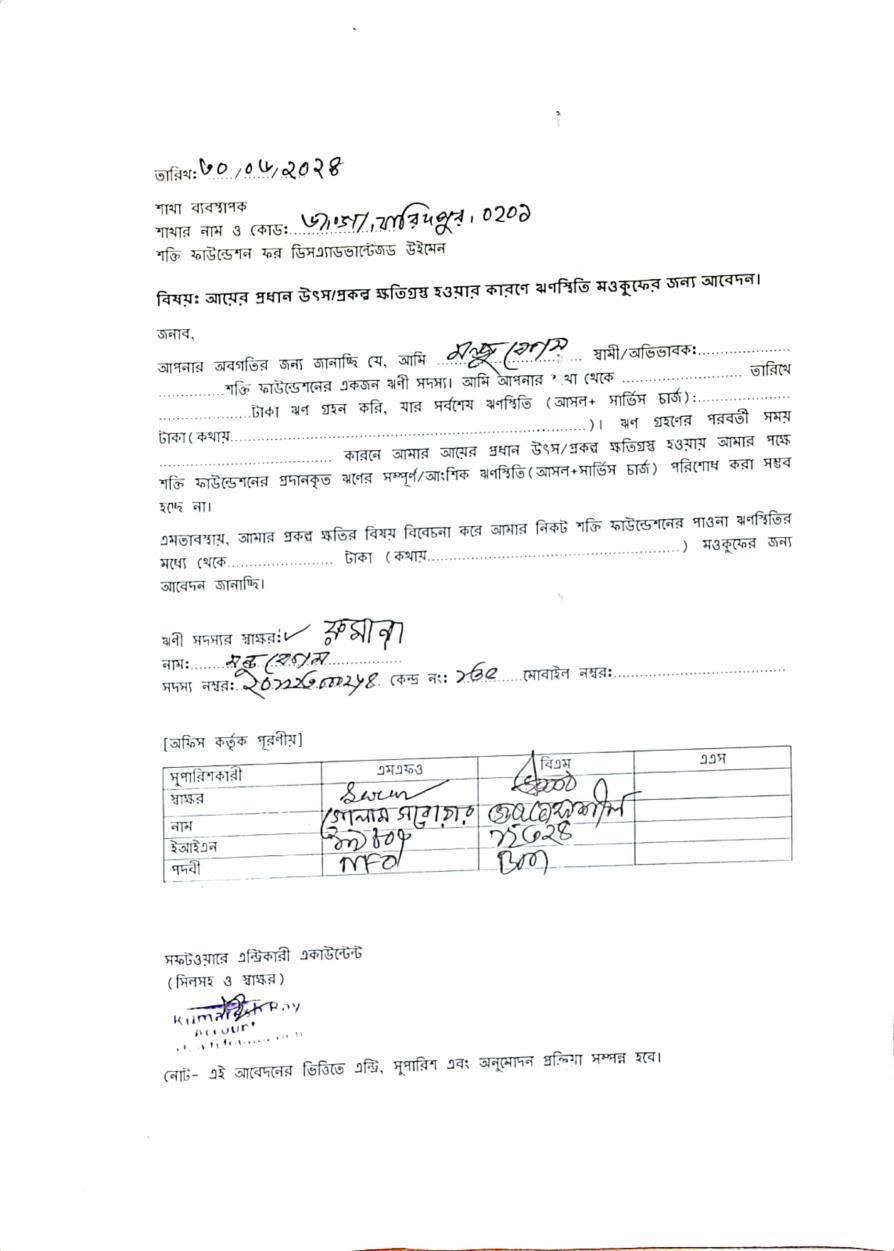 তারিখ: ৩০/০৬/২০২৪
শাখা ব্যবস্থাপক
শাখার নাম ও কোড: ভাঙ্গা, ফরিদপুর, ০২০৯
শক্তি ফাউন্ডেশন ফর ডিসএ্যাডভান্টেজড উইমেন
বিষয়: আয়ের প্রধান উৎস/প্রকল্প ক্ষতিগ্রস্ত হওয়ার কারণে ঋণস্থিতি মওকুফের জন্য আবেদন।
জনাব,
আপনার অবগতির জন্য জানাচ্ছি যে, আমি ...... মঞ্জু বেগম ...... স্বামী/অভিভাবক:......
......শক্তি ফাউন্ডেশনের একজন ঋণী সদস্য। আমি আপনার খা থেকে ...... তারিখে
......টাকা ঋণ গ্রহন করি, যার সর্বশেষ ঋণস্থিতি (আসল+ সার্ভিস চার্জ):......
টাকা(কথায়......)। ঋণ গ্রহণের পরবর্তী সময়
...... কারনে আমার আয়ের প্রধান উৎস/প্রকল্প ক্ষতিগ্রস্ত হওয়ায় আমার পক্ষে
শক্তি ফাউন্ডেশনের প্রদানকৃত ঋণের সম্পূর্ণ/আংশিক ঋণস্থিতি(আসল+সার্ভিস চার্জ) পরিশোধ করা সম্ভব
হচ্ছে না।
এমতাবস্থায়, আমার প্রকল্প ক্ষতির বিষয় বিবেচনা করে আমার নিকট শক্তি ফাউন্ডেশনের পাওনা ঋণস্থিতির
মধ্যে থেকে...... টাকা (কথায়......) মওকুফের জন্য
আবেদন জানাচ্ছি।
ঋণী সদস্যর স্বাক্ষর:
নাম:...... মঞ্জু বেগম ......
সদস্য নম্বর: কেন্দ্র নং: মোবাইল নম্বর:......
[অফিস কর্তৃক পূরণীয়]
সুপারিশকারী এমএফও বিএম এএস
স্বাক্ষর
নাম গোলাম সারোয়ার
ইআইএন
পদবী MFO BM
সফটওয়ারে এন্ট্রিকারী একাউন্টেন্ট
(সিলসহ ও স্বাক্ষর)
নোট- এই আবেদনের ভিত্তিতে এন্ট্রি, সুপারিশ এবং অনুমোদন প্রক্রিয়া সম্পন্ন হবে।